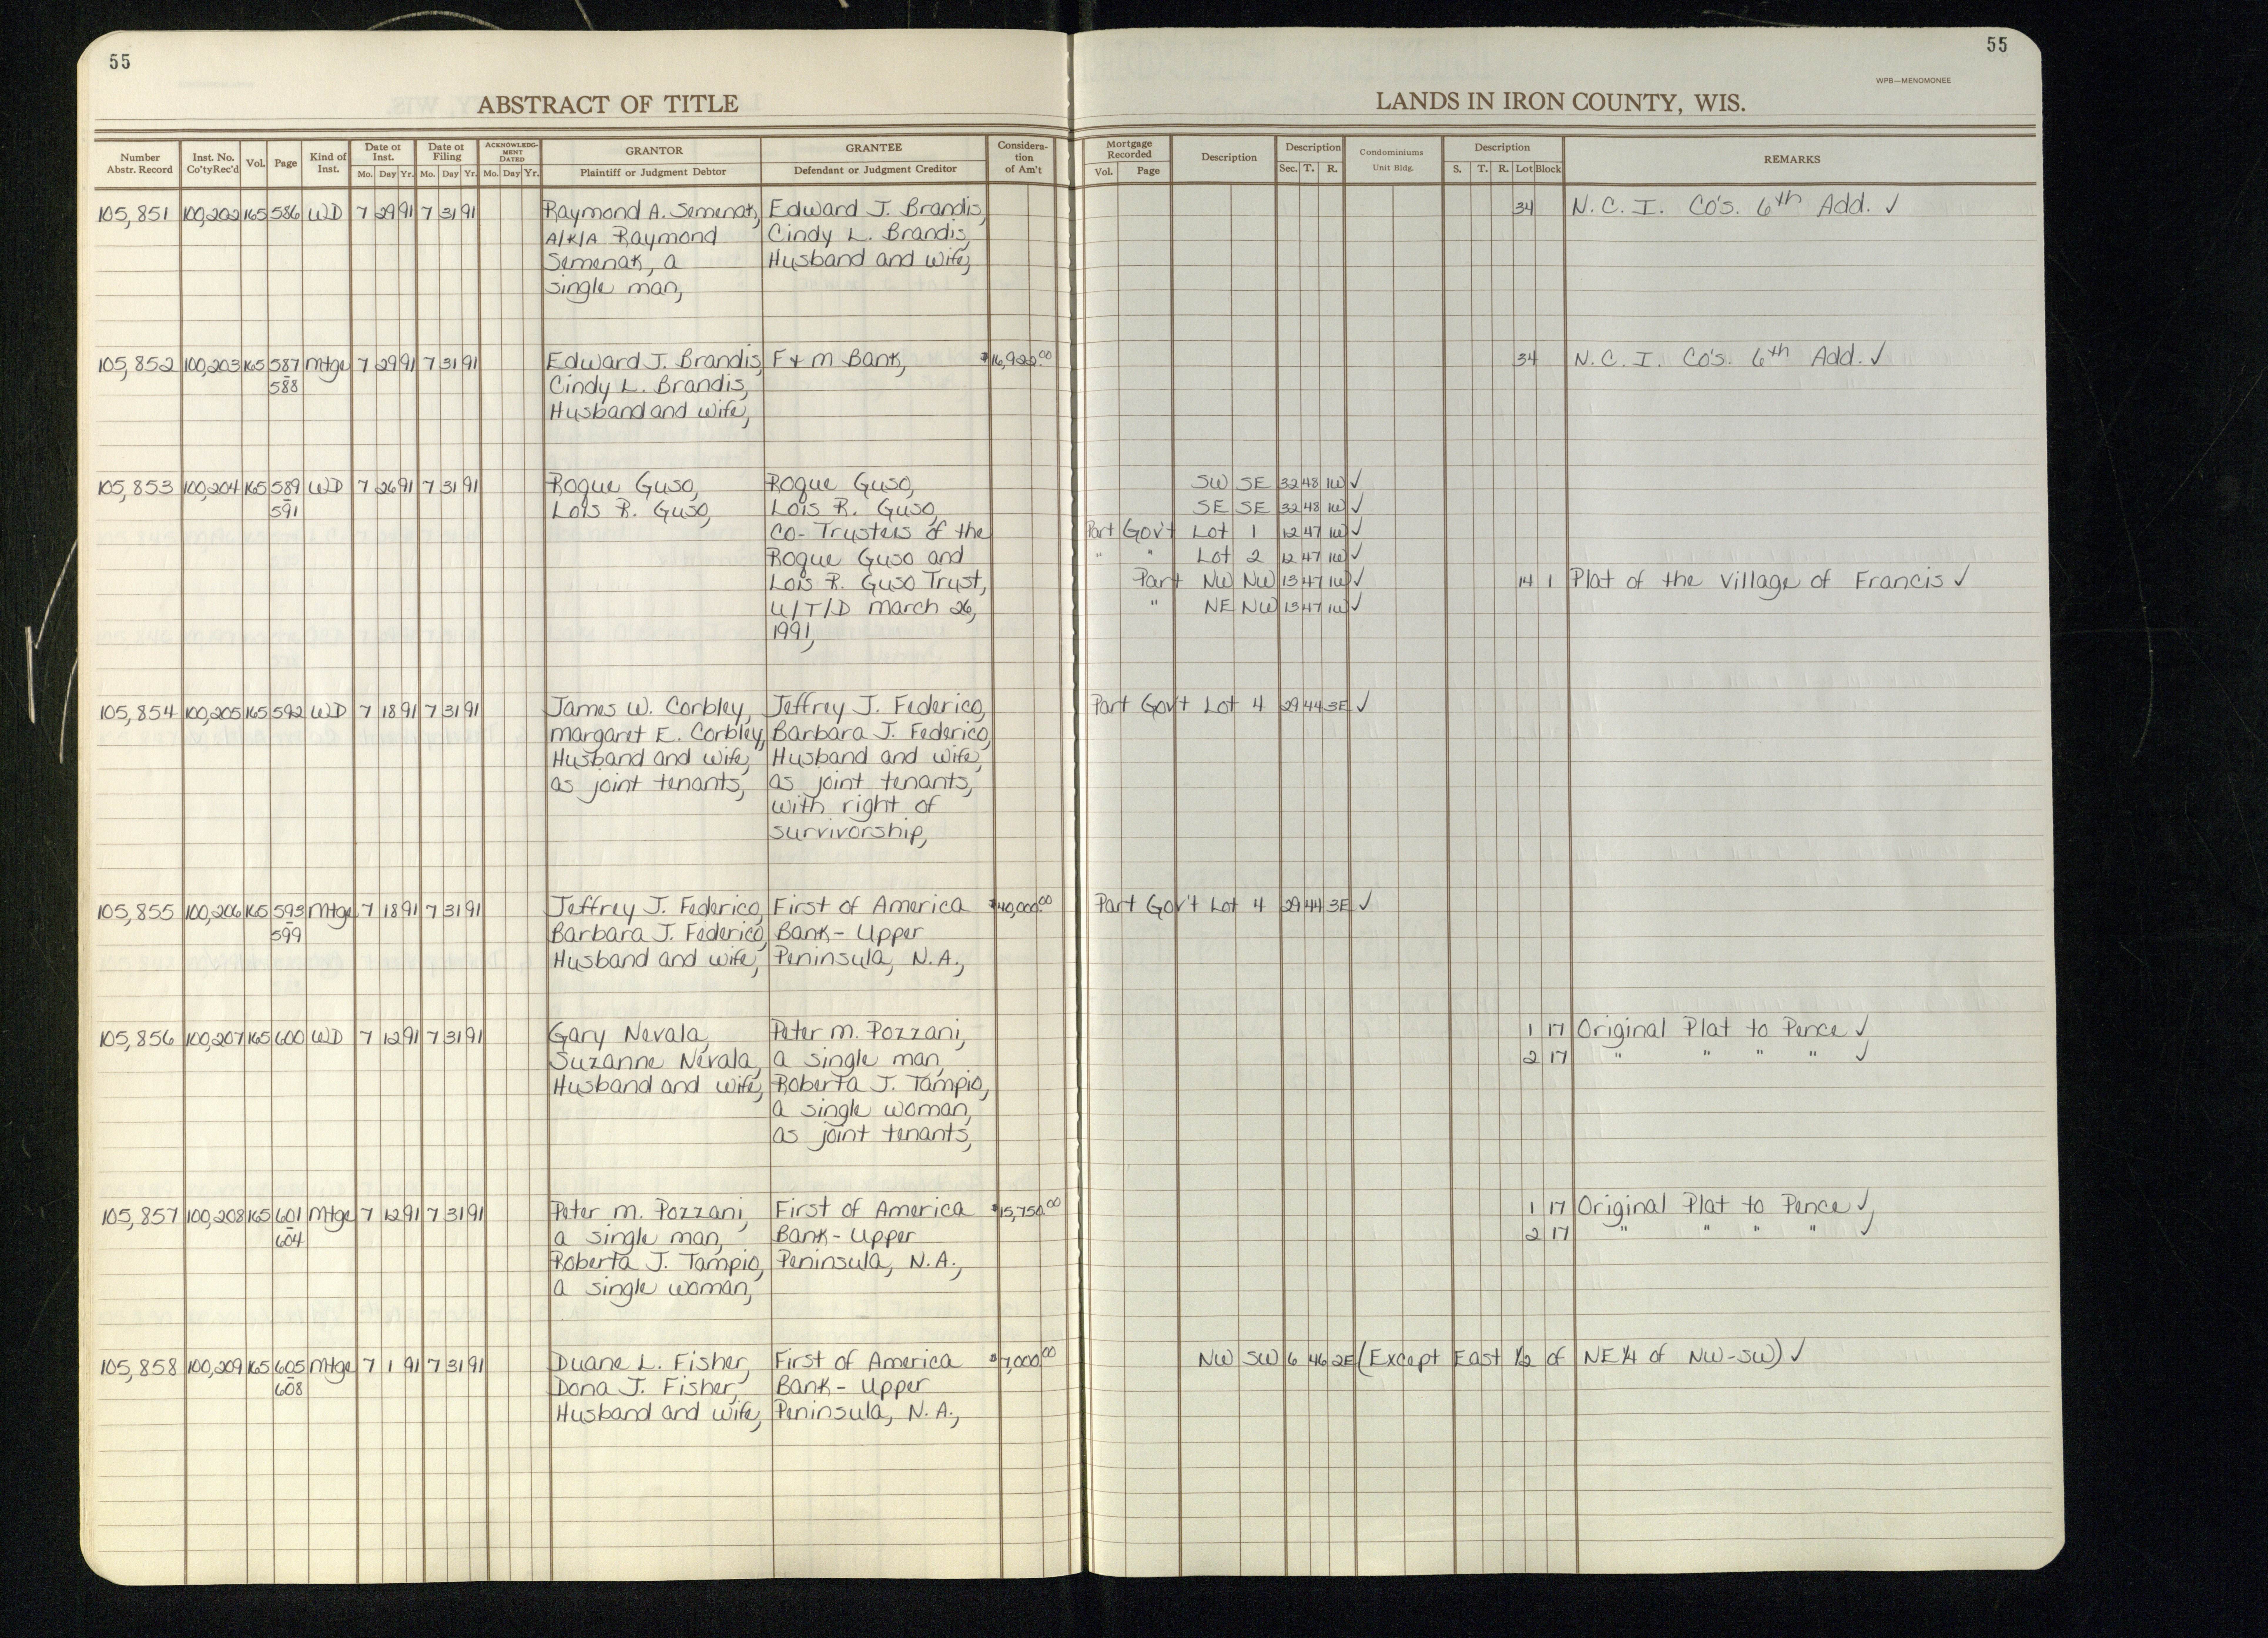 55
55
WPB—MENOMONEE
ABSTRACT OF TITLE
LANDS IN IRON COUNTY, WIS.
Number Abstr. Record Inst. No. Co'ty Rec'd Vol. Page Kind of Inst. Date of Inst. Mo. Day Yr. Date of Filing Mo. Day Yr. ACKNOWLEDG-MENT DATED Mo. Day Yr. GRANTOR Plaintiff or Judgment Debtor GRANTEE Defendant or Judgment Creditor Considera-tion of Am't Mortgage Recorded Vol. Page Description Description Sec. T. R. Condominiums Unit Bldg. Description S. T. R. Lot Block REMARKS
105,851 100,202 165 586 WD 7 29 91 7 31 91 Raymond A. Semenak, Edward J. Brandis, 34 N.C.I. Co's. 6th Add. ✓
A/K/A Raymond Cindy L. Brandis,
Semenak, a Husband and wife,
single man,
105,852 100,203 165 587 Mtge 7 29 91 7 31 91 Edward J. Brandis, F & M Bank, $16,922.00 34 N.C.I. Co's. 6th Add. ✓
588 Cindy L. Brandis,
Husband and wife,
105,853 100,204 165 589 WD 7 26 91 7 31 91 Roque Guso, Roque Guso, SW SE 32 48 1W ✓
591 Lois R. Guso, Lois R. Guso, SE SE 32 48 1W ✓
Co-Trustees of the Part Gov't Lot 1 12 47 1W ✓
Roque Guso and " " Lot 2 12 47 1W ✓
Lois R. Guso Trust, Part NW NW 13 47 1W ✓ 14 1 Plat of the Village of Francis ✓
U/T/D March 26, " NE NW 13 47 1W ✓
1991,
105,854 100,205 165 592 WD 7 18 91 7 31 91 James W. Corbley, Jeffrey J. Federico, Part Gov't Lot 4 29 44 3E ✓
Margaret E. Corbley, Barbara J. Federico,
Husband and wife, Husband and wife,
as joint tenants, as joint tenants,
with right of
survivorship,
105,855 100,206 165 593 Mtge 7 18 91 7 31 91 Jeffrey J. Federico, First of America $40,000.00 Part Gov't Lot 4 29 44 3E ✓
599 Barbara J. Federico, Bank - Upper
Husband and wife, Peninsula, N.A.,
105,856 100,207 165 600 WD 7 12 91 7 31 91 Gary Nevala, Peter M. Pozzani, 1 17 Original Plat to Pence ✓
Suzanne Nevala, a single man, 2 17 " " " " ✓
Husband and wife, Roberta J. Tampio,
a single woman,
as joint tenants,
105,857 100,208 165 601 Mtge 7 12 91 7 31 91 Peter M. Pozzani, First of America $15,750.00 1 17 Original Plat to Pence ✓
604 a single man, Bank - Upper 2 17 " " " " ✓
Roberta J. Tampio, Peninsula, N.A.,
a single woman,
105,858 100,209 165 605 Mtge 7 1 91 7 31 91 Duane L. Fisher, First of America $7,000.00 NW SW 6 46 2E (Except East 1/2 of NE 1/4 of NW-SW) ✓
608 Dona J. Fisher, Bank - Upper
Husband and wife, Peninsula, N.A.,